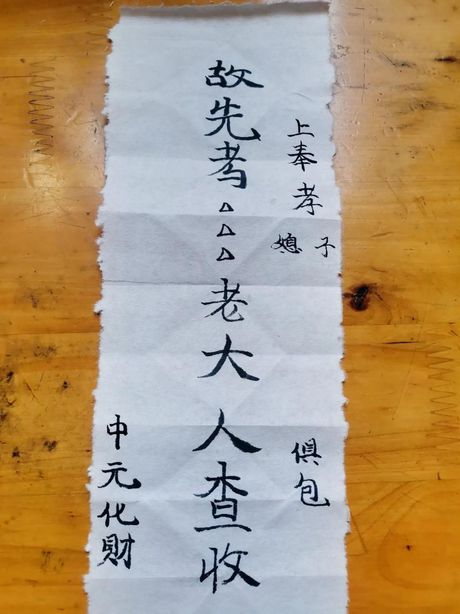 上奉孝子媳俱包
故先考△△△老大人查收
中元化財